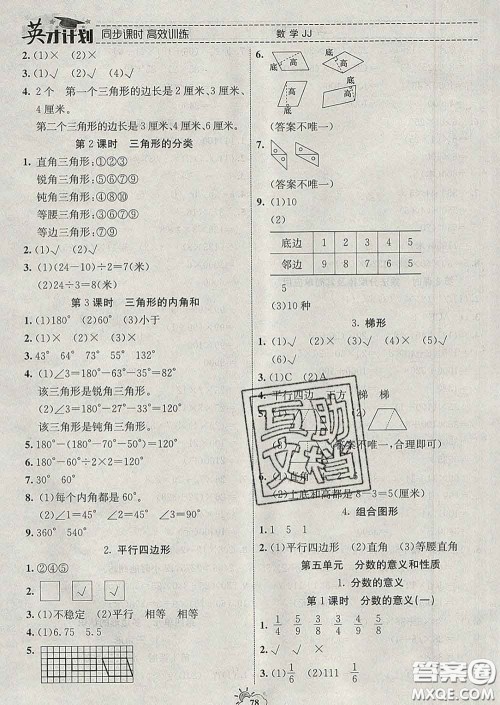 英才计划 同步课时 高效训练 数学 JJ
2. (1)× (2)×
3. (1)√ (2)√
4. 2个 第一个三角形的边长是2厘米、3厘米、4厘米。
第二个三角形的边长是3厘米、4厘米、6厘米。
第2课时 三角形的分类
1. 直角三角形:①②③
锐角三角形:⑤⑦⑨
钝角三角形:④⑥⑧
等腰三角形:⑦⑨
等边三角形:⑦
2. (1)√ (2)√
3. (1)(24-10)÷2=7(米)
(2)24÷3=8(米)
第3课时 三角形的内角和
1. (1)180° (2)60° (3)小于
2. (1)× (2)× (3)×
3. 43° 68° 73° 55° 132°
4. (1)∠3=180°-63°-35°=82°
该三角形是锐角三角形。
(2)∠3=180°-15°-20°=145°
该三角形是钝角三角形。
5. 180°-(180°-60°)÷2=120°
7. 180°-50°-50°=80°
8. (1)每个内角都是60°。
(2)∠1=45° ∠2=45° ∠3=90°
9. 360° 540°
2. 平行四边形
1. ②④⑤
2. √ √
3. (1)不稳定 (2)平行 相等 相等
4. (1)6.75 5.5
5.
6. 底 高 高 底
底 高 高 底
(答案不唯一)
7.
(答案不唯一)
9. (1)10
(2)
底边 1 2 3 4 5
邻边 9 8 7 6 5
5
(3)10种
3. 梯形
2. (1)√ (2)× (3)× (4)√ (5)√
(6)√
3. (1)C (2)A
4. 平行四边 平方 梯 梯
5. (答案不唯一,合理即可)
6. (1)直角
(2)上底和高都是8-3=5(厘米)
4. 组合图形
1. 1 5 1
2. (1)平行四边形 (2)直角 (3)等腰直角
第五单元 分数的意义和性质
1. 分数的意义
第1课时 分数的意义(一)
1. 1/4 4/9 5/8 7/9 4/5 5/8
2. (1)× (2)× (3)√
3. (1)1/6 (2)1 11 1/6
78
互助文档
答案圈
MXQE.COM